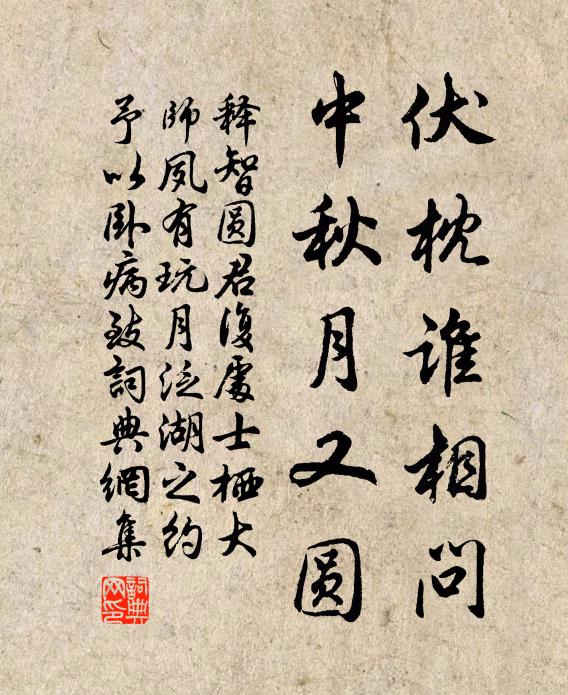 伏枕谁相问
中秋月又圆
释智圆君復處士栖大
师夙有玩月泛湖之约
予以卧病致詞典網集
詞典网印